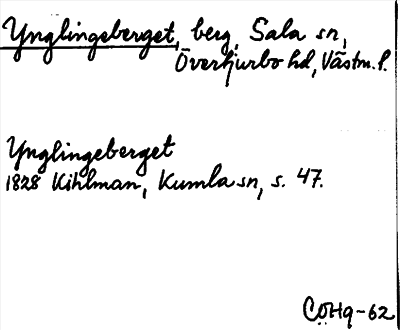 Ynglingeberget, berg, Sala sn,
Övertjurbo hd, Västm. l.
Ynglingeberget
1828 Kihlman, Kumla sn, s. 47.
CÖHq-62